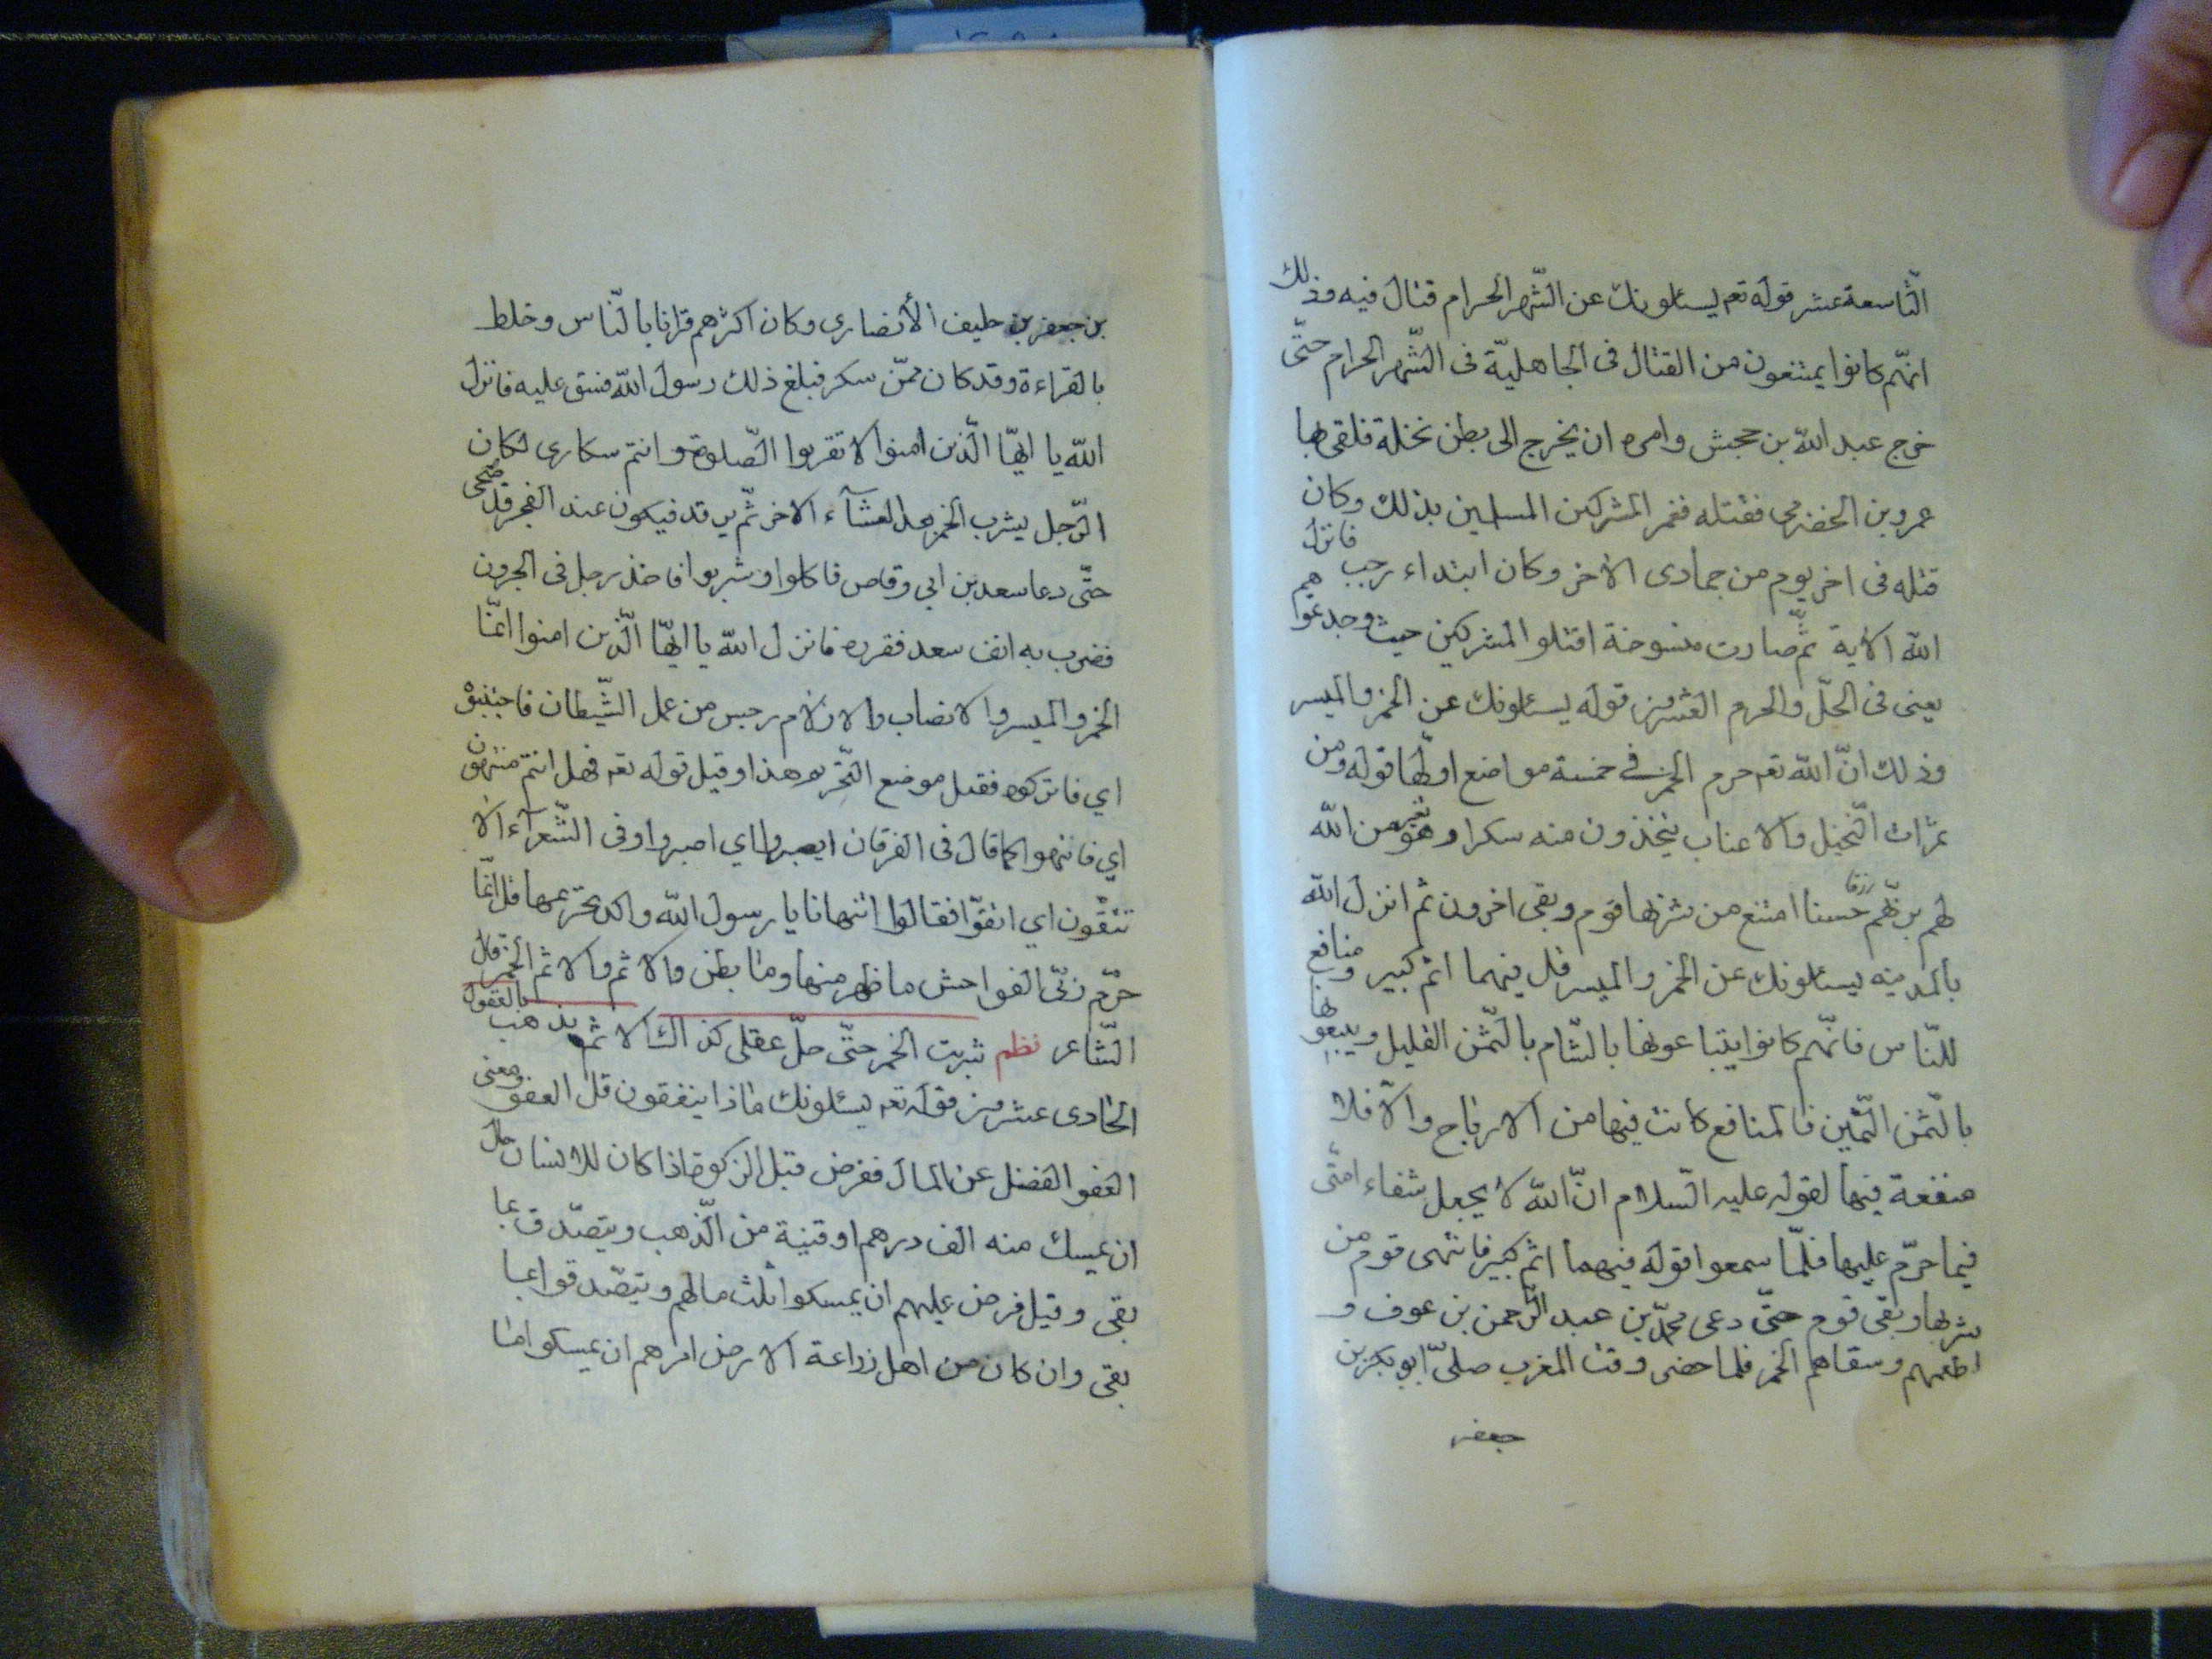 التّاسعة عشر قوله تعم يسئلونك عن الشّهر الحرام قتال فيه وذلك
انّهم كانوا يمتنعون من القتال فى الجاهليّة فى الشّهر الحرام حتّى
خرج عبد اللّه بن جحش وامره ان يخرج الى بطن نخلة فلقى بها
عمرو بن الحضرمى فقتله فغمر المشركين المسلمين بذلك وكان
قتله فى اخر يوم من جمادى الاخر وكان ابتداء رجب فانزل
اللّه الاية ثمّ صارت منسوخة اقتلو المشركين حيث وجدتموهم
يعنى فى الحلّ والحرم العشرون قوله يسئلونك عن الخمر والميسر
وذلك انّ اللّه تعم حرم الخمر فى خمسة مواضع اولها قوله ومن
ثمرات النّخيل والاعناب يتخذون منه سكرا وهو من اللّه
لهم بربّهم رزقا حسنا امتنع من شربها قوم وبقى اخرون ثم انزل اللّه
بالمدينه يسئلونك عن الخمر والميسر قل فيهما اثم كبير ومنافع
للنّاس فانّهم كانوا يبتاعونها بالشّام بالثّمن القليل ويبيعونها
بالثّمن الثّمين فالمنافع كانت فيها من الارباح والّا فلا
منفعة فيها لقوله عليه السّلام انّ اللّه لا يجعل شفاء امّتى
فيما حرّم عليها فلمّا سمعوا قوله فيهما اثم كبير فانتهى قوم من
شربها وبقى قوم حتّى دعى محمّد بن عبد الرّحمن بن عوف و
اطعمهم وسقاهم الخمر فلما حضر وقت المغرب صلىّ ابو بكر بن
جعفر
بن جعفر بن حليف الأنصارى وكان اكثرهم قرانا بالنّاس وخلط
بالقراءة وقد كان ممّن سكر فبلغ ذلك رسول اللّه فشق عليه فانزل
اللّه يا ايّها الّذين امنوا لا تقربوا الصّلوة وانتم سكارى لكان
الرّجل يشرب الخمر بعد العشآء الاخر ثمّ يرقد فيكون عند الفجر قد صحى
حتّى دعا سعد بن ابى وقاص فاكلوا وشربوا فاخذ رجل فى الجرون
فضرب به انف سعد فقرره فانزل اللّه يا ايّها الّذين امنوا انّما
الخمر والميسر والانصاب والازلام رجس من عمل الشّيطان فاجتنبوه
اي فاتركوه فقيل موضع التّحريم هذا وقيل قوله تعم فهل انتم منتهون
اي فانتهوا كما قال فى الفرقان ايصبروا اي اصبروا وفى الشّعرآء الا
تتقّون اي اتقوّا فقالوا انتهانا يا رسول اللّه واكد تحريمها قل انّما
حرّم ربّى الفواحش ما ظهر منها وما بطن والاثم والاثم الخمر قال
الشّاعر نظم شربت الخمر حتّى ضلّ عقلى كذاك الاثم يذهب بالعقول
الحادى عشرون قوله تعم يسئلونك ماذا ينفقون قل العفو معنى
العفو الفضل عن المال ففرض قبل الزكوة اذا كان للانسان مال
ان يمسك منه الف درهم او قنية من الذّهب ويتصّدق بما
بقى وقيل فرض عليهم ان يمسكوا ثلث مالهم ويتصّدقوا بما
بقى وان كان من اهل زراعة الارض امرهم ان يمسكوا ما